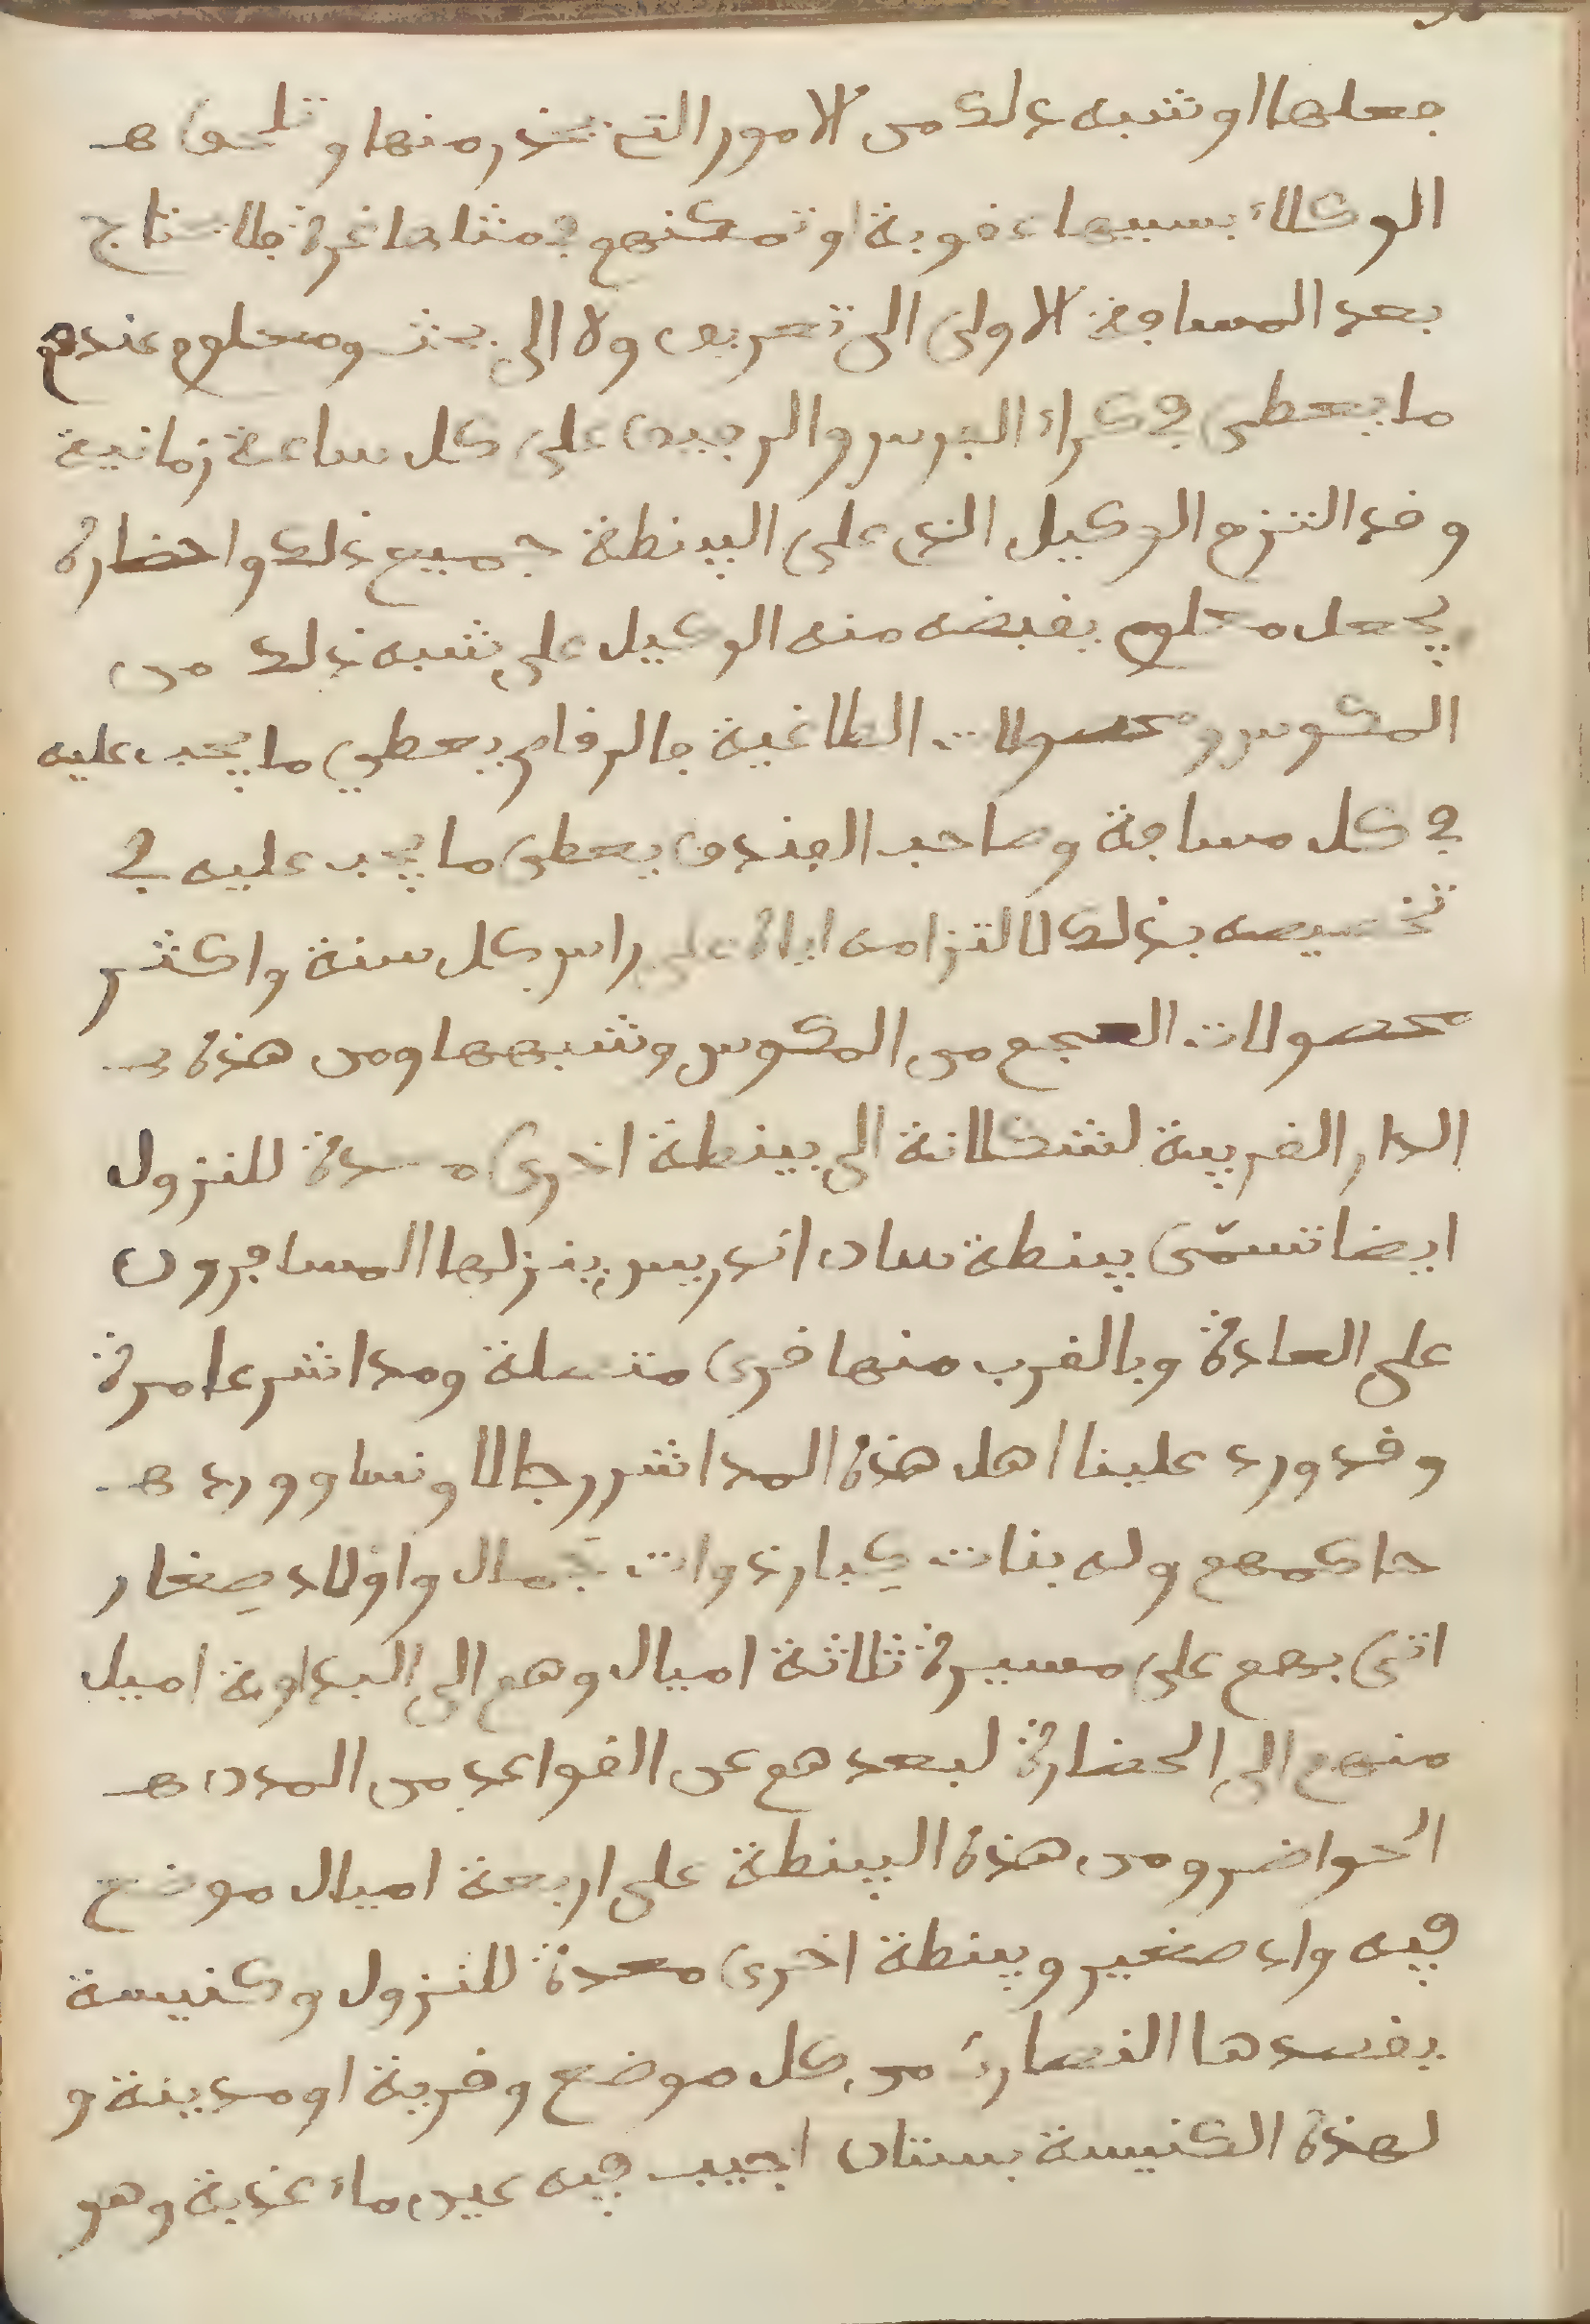 فعلها او شبه ذلك من الامور التي يحذر منها وتلحق
الوكلاء بسببها عقوبة او تمكنهم في مثلها غرة فلا يحتاج
بعد المسافة الاولى الى تعريف ولا الى بحث ومعلوم عندهم
ما يعطى في كراء الفرس والرفيق على كل ساعة زمانية
وقد التزم الوكيل الذي على البينطة جميع ذلك واحضاره
بجعل معلوم يقبضه منه الوكيل على شبه ذلك من
المكوس ومحصولات الطاغية فالرقاص يعطي ما يجب عليه
في كل مسافة وصاحب الفندق يعطى ما يجب عليه في
تخصيصه بذلك لالتزامه اياه على راس كل سنة واكثر
محصولات العجم من المكوس وشبهها ومن هذه
الدار القريبة لشكلانة الى بينطة اخرى معدة للنزول
ايضا تسمّى بينطة سان اندريس ينزلها المسافرون
على العادة وبالقرب منها قرى متصلة ومداشر عامرة
وقد ورد علينا اهل هذه المداشر رجالا ونسا وورد
حاكمهم وله بنات كبار ذوات جمال واولاد صغار
اتى بهم على مسيرة ثلاثة اميال وهم الى البداوة اميل
منهم الى الحضارة لبعدهم عن القواعد من المدن
الحواضر ومن هذه البينطة على اربعة اميال موضع
فيه واد صغير وبينطة اخرى معدة للنزول وكنيسة
يقصدها النصارى من كل موضع وقرية او مدينة و
لهذه الكنيسة بستان اجيب فيه عين ماء عذبة وهو